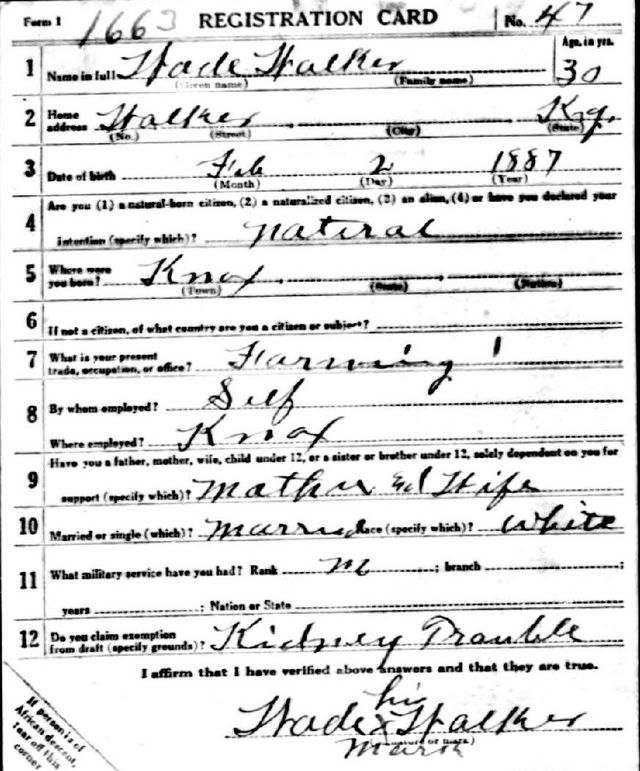 Form 1 1663 REGISTRATION CARD No. 47
1 Name in full Wade Walker Age, in yrs.
(Given name) (Family name) 30
2 Home address Walker Ky.
(No.) (Street) (City) (State)
3 Date of birth Feb 2 1887
(Month) (Day) (Year)
4 Are you (1) a natural-born citizen, (2) a naturalized citizen, (3) an alien, (4) or have you declared your
intention (specify which)? natural
5 Where were you born? Knox
(Town) (State) (Nation)
6 If not a citizen, of what country are you a citizen or subject?
7 What is your present trade, occupation, or office? Farming
8 By whom employed? Self
Where employed? Knox
9 Have you a father, mother, wife, child under 12, or a sister or brother under 12, solely dependent on you for
support (specify which)? Mother Wife
10 Married or single (which)? Married Race (specify which)? White
11 What military service have you had? Rank ; branch ;
years ; Nation or State
12 Do you claim exemption from draft (specify grounds)? Kidney Trouble
I affirm that I have verified above answers and that they are true.
his
Wade x Walker
mark (Signature or mark)
If person is of
African descent,
tear off this
corner